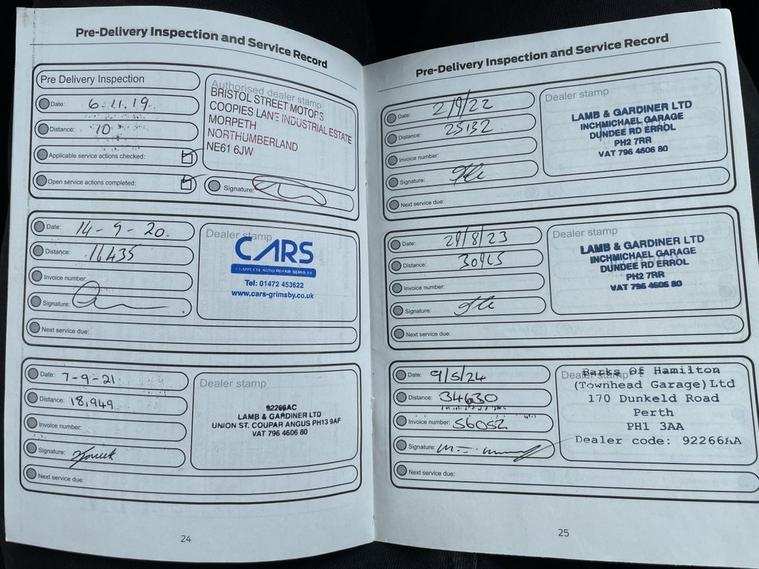 Pre-Delivery Inspection and Service Record
Pre Delivery Inspection
Date: 6.11.19.
Distance: 10
Applicable service actions checked:
Open service actions completed:
Authorised dealer stamp
BRISTOL STREET MOTORS
COOPIES LANE INDUSTRIAL ESTATE
MORPETH
NORTHUMBERLAND
NE61 6JW
Signature:
Date: 14-9-20.
Distance: 16435
Invoice number:
Signature:
Next service due:
Dealer stamp
CARS
COMPLETE AUTO REPAIR SERVICES
Tel: 01472 453622
www.cars-grimsby.co.uk
Date: 7-9-21
Distance: 18,949
Invoice number:
Signature:
Next service due:
Dealer stamp
92266AC
LAMB & GARDINER LTD
UNION ST. COUPAR ANGUS PH13 9AF
VAT 796 4606 80
24
Pre-Delivery Inspection and Service Record
Date: 2/9/22
Distance: 25132
Invoice number:
Signature:
Next service due:
Dealer stamp
LAMB & GARDINER LTD
INCHMICHAEL GARAGE
DUNDEE RD ERROL
PH2 7RR
VAT 796 4606 80
Date: 29/8/23
Distance: 30965
Invoice number:
Signature:
Next service due:
Dealer stamp
LAMB & GARDINER LTD
INCHMICHAEL GARAGE
DUNDEE RD ERROL
PH2 7RR
VAT 796 4606 80
Date: 9/5/24
Distance: 34630
Invoice number: 56052
Signature:
Next service due:
Dealer stamp
Parks Of Hamilton
(Townhead Garage) Ltd
170 Dunkeld Road
Perth
PH1 3AA
Dealer code: 92266AA
25